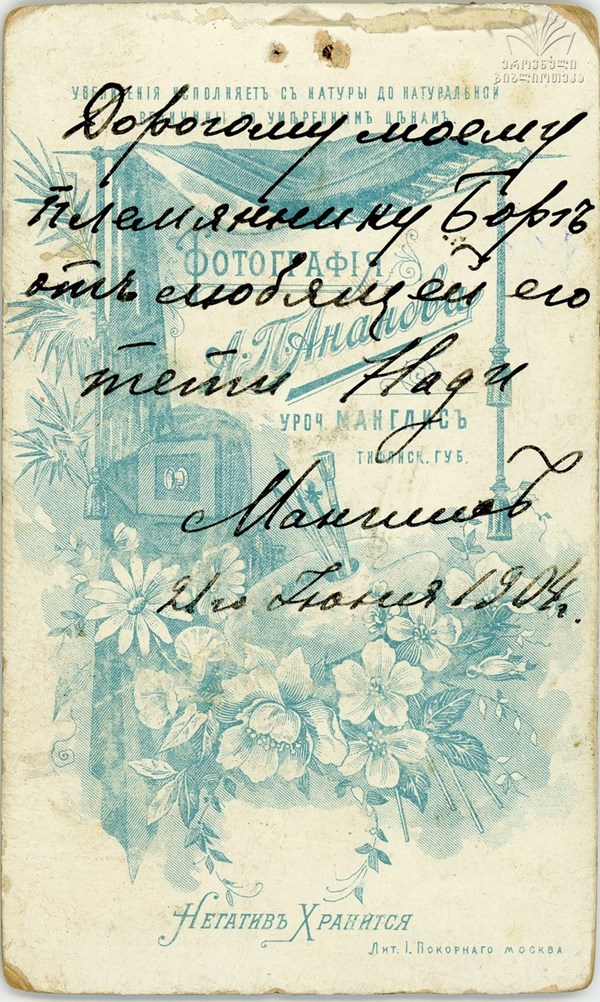 ეროვნული
ბიბლიოთეკა
УВЕЛИЧЕНІЯ ИСПОЛНЯЕТЪ СЪ НАТУРЫ ДО НАТУРАЛЬНОЙ
ВЕЛИЧИНЫ ПО УМѢРЕННЫМЪ ЦѢНАМЪ.
Дорогому моему
племяннику Борѣ
ФОТОГРАФІЯ
отъ любящей его
А. П. Ананова
тети Нади
УРОЧ. МАНГЛИСЪ
ТИФЛИСК. ГУБ.
Манглисъ
21го Іюня 1904г.
НЕГАТИВЪ ХРАНИТСЯ
ЛИТ. І. ПОКОРНАГО МОСКВА